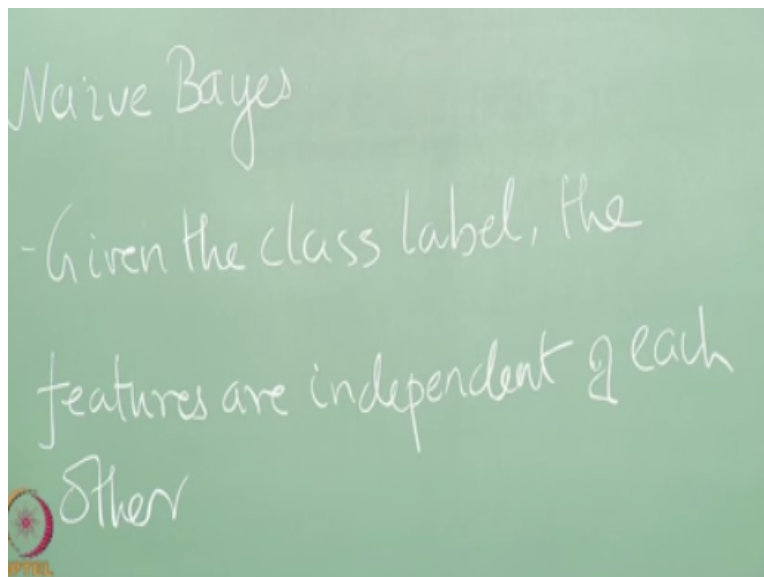 Naive Bayes
- Given the class label, the
features are independent of each
other
NPTEL